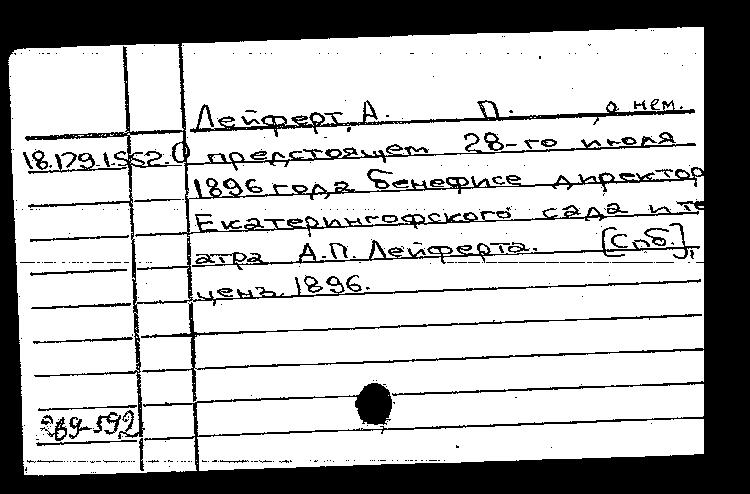 Лейферт, А. П. , о нем.
18.179.1.552. О предстоящем 28-го июля
1896 года бенефисе директор
Екатерингофского сада и те
атра А.П. Лейферта. [Спб.],
ценз. 1896.
269-592